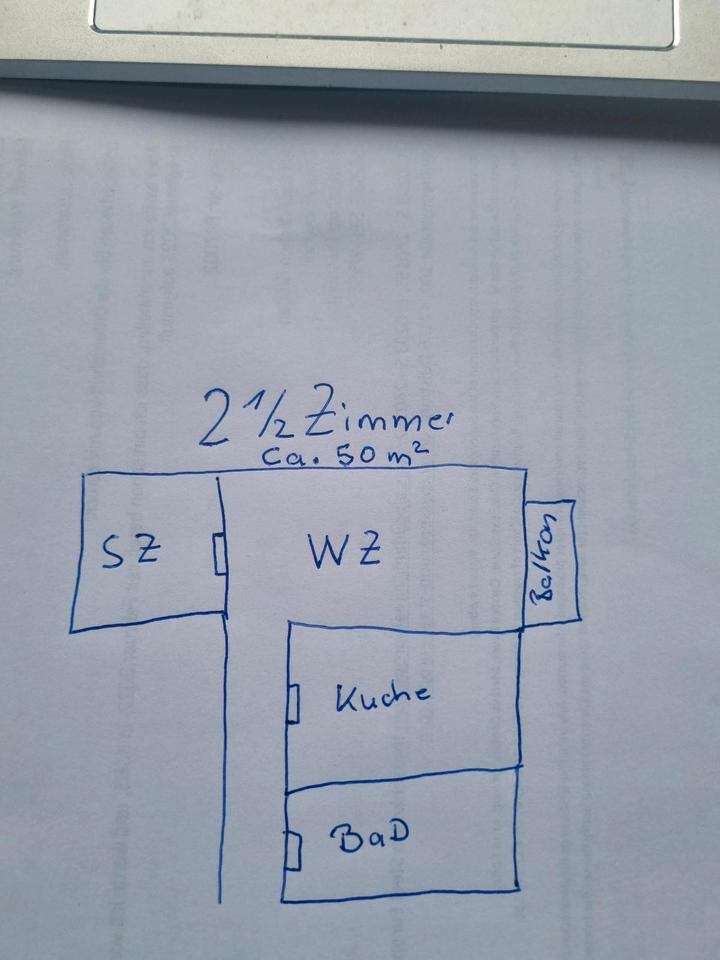 2 1/2 Zimmer
ca. 50 m²
SZ
WZ
Balkon
Kuche
BaD